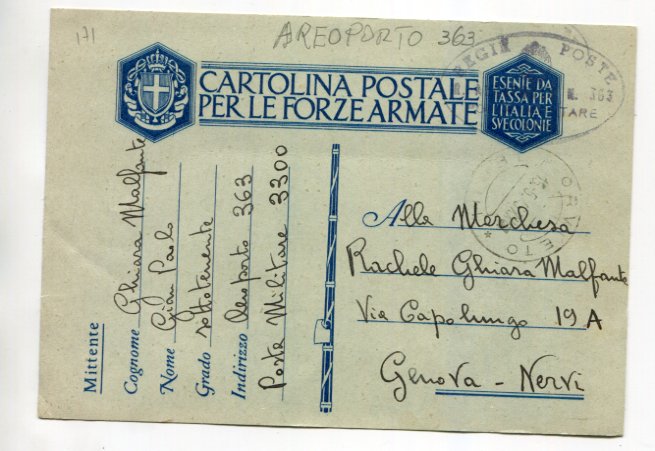 171
AREOPORTO 363
CARTOLINA POSTALE
PER LE FORZE ARMATE
ESENTE DA
TASSA PER
L'ITALIA E
SVE COLONIE
POSTE
N. 363
TARE
ORVIETO
Mittente
Cognome Ghiara Malfante
Nome Gian Paolo
Grado sottotenente
Indirizzo Aeroporto 363
Posta Militare 3300
Alla Marchesa
Rachele Ghiara Malfante
Via Capolungo 19 A
Genova - Nervi